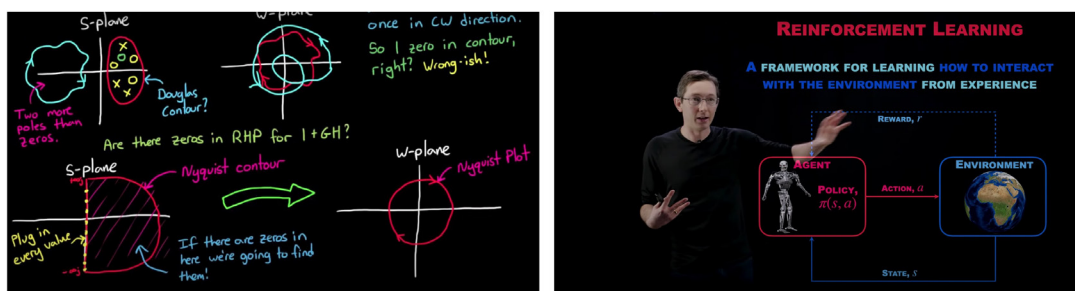 S-plane
W-plane
once in CW direction.
So 1 zero in contour,
right? Wrong-ish!
Two more
poles than
zeros.
Douglas
Contour?
Are there zeros in RHP for 1+GH?
S-plane
Nyquist contour
W-plane
Nyquist Plot
Plug in
every value
If there are zeros in
here we're going to find
them!
REINFORCEMENT LEARNING
A FRAMEWORK FOR LEARNING HOW TO INTERACT
WITH THE ENVIRONMENT FROM EXPERIENCE
REWARD, r
AGENT
ENVIRONMENT
POLICY,
π(s, a)
ACTION, a
STATE, s